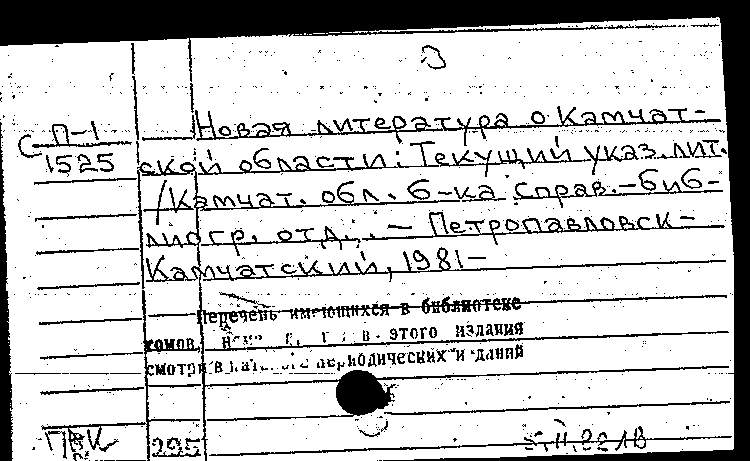 З
С П-1
1525
Новая литература о Камчат-
ской области: Текущий указ. лит.
/Камчат. обл. б-ка Справ.-биб-
лиогр. отд. . — Петропавловск-
Камчатский, 1981—
Перечень имеющихся в библиотеке
томов, этого издания
смотри в периодических изданий
295